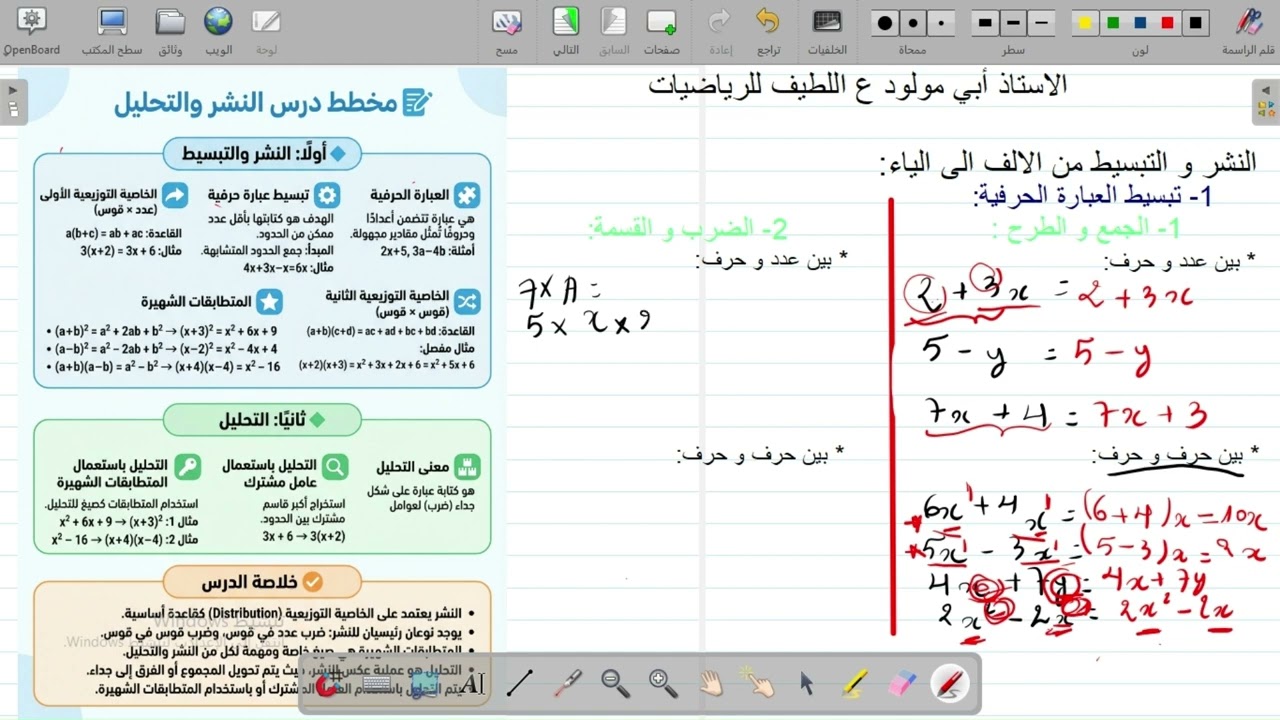 OpenBoard
سطح المكتب
وثائق
الويب
لوحة
مسح
التالي
السابق
صفحات
إعادة
تراجع
الخلفيات
ممحاة
سطر
لون
قلم الراسمة
الاستاذ أبي مولود ع اللطيف للرياضيات
النشر و التبسيط من الالف الى الياء:
1- تبسيط العبارة الحرفية:
1- الجمع و الطرح :
* بين عدد و حرف:
2 + 3x = 2 + 3x
5 - y = 5 - y
7x + 4 = 7x + 3
* بين حرف و حرف:
6x + 4x = (6+4)x = 10x
5x - 3x = (5-3)x = 2x
4x + 7y = 4x + 7y
2x² - 2x = 2x² - 2x
2- الضرب و القسمة:
* بين عدد و حرف:
7 × A =
5 × x ×
* بين حرف و حرف:
مخطط درس النشر والتحليل
أولًا: النشر والتبسيط
العبارة الحرفية
هي عبارة تتضمن أعدادًا
وحروفًا تُمثل مقادير مجهولة.
أمثلة: 2x+5, 3a−4b
تبسيط عبارة حرفية
الهدف هو كتابتها بأقل عدد
ممكن من الحدود.
المبدأ: جمع الحدود المتشابهة.
مثال: 4x+3x−x=6x
الخاصية التوزيعية الأولى
(عدد × قوس)
القاعدة: a(b+c) = ab + ac
مثال: 3(x+2) = 3x + 6
الخاصية التوزيعية الثانية
(قوس × قوس)
القاعدة: (a+b)(c+d) = ac + ad + bc + bd
مثال مفصل:
(x+2)(x+3) = x² + 3x + 2x + 6 = x² + 5x + 6
المتطابقات الشهيرة
• (a+b)² = a² + 2ab + b² → (x+3)² = x² + 6x + 9
• (a−b)² = a² − 2ab + b² → (x−2)² = x² − 4x + 4
• (a+b)(a−b) = a² − b² → (x+4)(x−4) = x² − 16
ثانيًا: التحليل
معنى التحليل
هو كتابة عبارة على شكل
جداء (ضرب) لعوامل
التحليل باستعمال
عامل مشترك
استخراج أكبر قاسم
مشترك بين الحدود.
3x + 6 → 3(x+2)
التحليل باستعمال
المتطابقات الشهيرة
استخدام المتطابقات كصيغ للتحليل.
مثال 1: x² + 6x + 9 → (x+3)²
مثال 2: x² − 16 → (x+4)(x−4)
خلاصة الدرس
• النشر يعتمد على الخاصية التوزيعية (Distribution) كقاعدة أساسية.
تنشيط Windows
• يوجد نوعان رئيسيان للنشر: ضرب عدد في قوس، وضرب قوس في قوس.
• المتطابقات الشهيرة هي صيغ خاصة ومهمة لكل من النشر والتحليل.
• التحليل هو عملية عكس النشر، حيث يتم تحويل المجموع أو الفرق إلى جداء.
• يتم التحليل باستخدام العامل المشترك أو باستخدام المتطابقات الشهيرة.